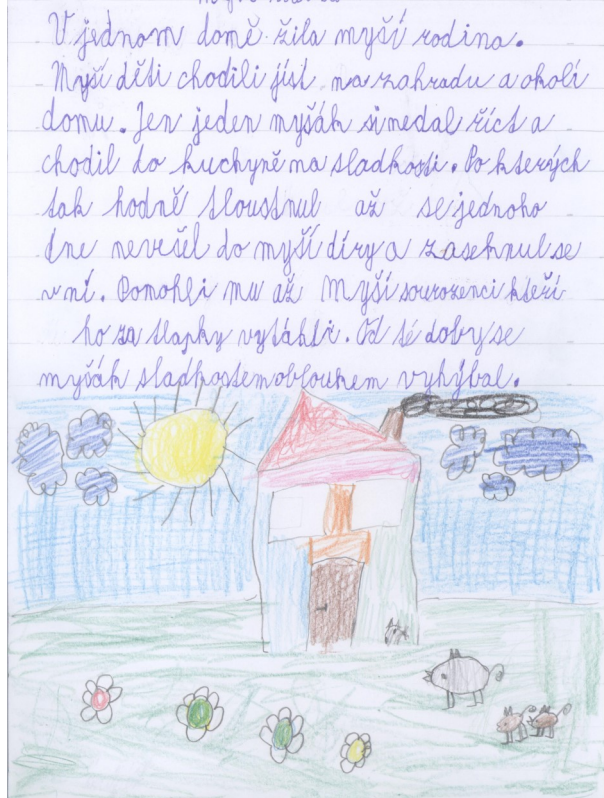 V jednom domě žila myší rodina.
Myší děti chodili jíst na zahradu a okolí
domu. Jen jeden myšák si nedal říct a
chodil do kuchyně na sladkosti. Po kterých
tak hodně tloustnul až se jednoho
dne nevešel do myší díry a zaseknul se
v ní. Pomohli mu až Myší sourozenci kteří
ho za tlapky vytáhli. Od té doby se
myšák sladkostem obloukem vyhýbal.